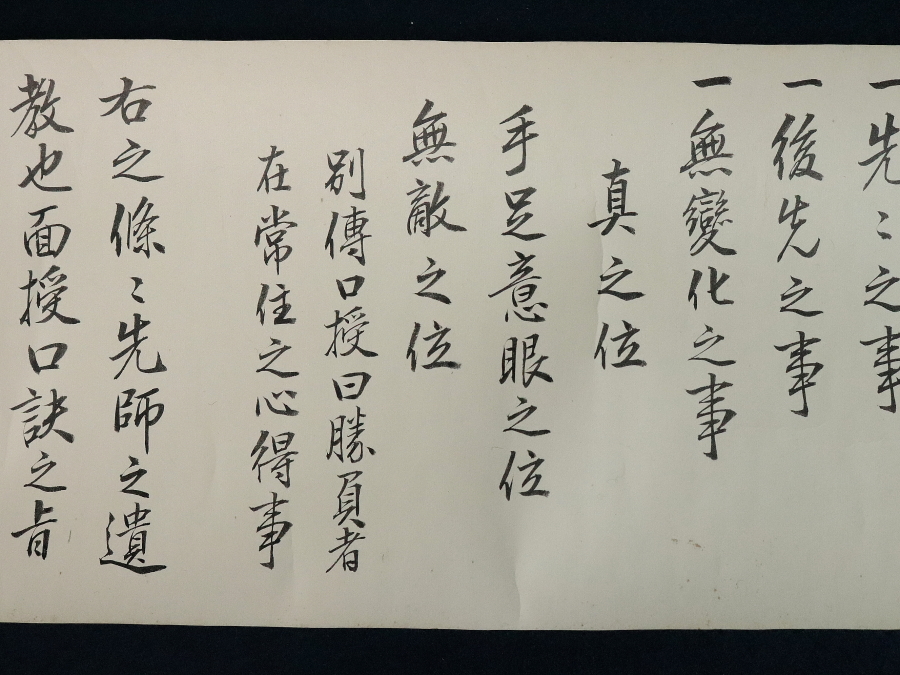 一先〻之事
一後先之事
一無變化之事
真之位
手足意眼之位
無敵之位
別傳口授曰勝負者
在常住之心得事
右之條〻先師之遺
教也面授口訣之旨